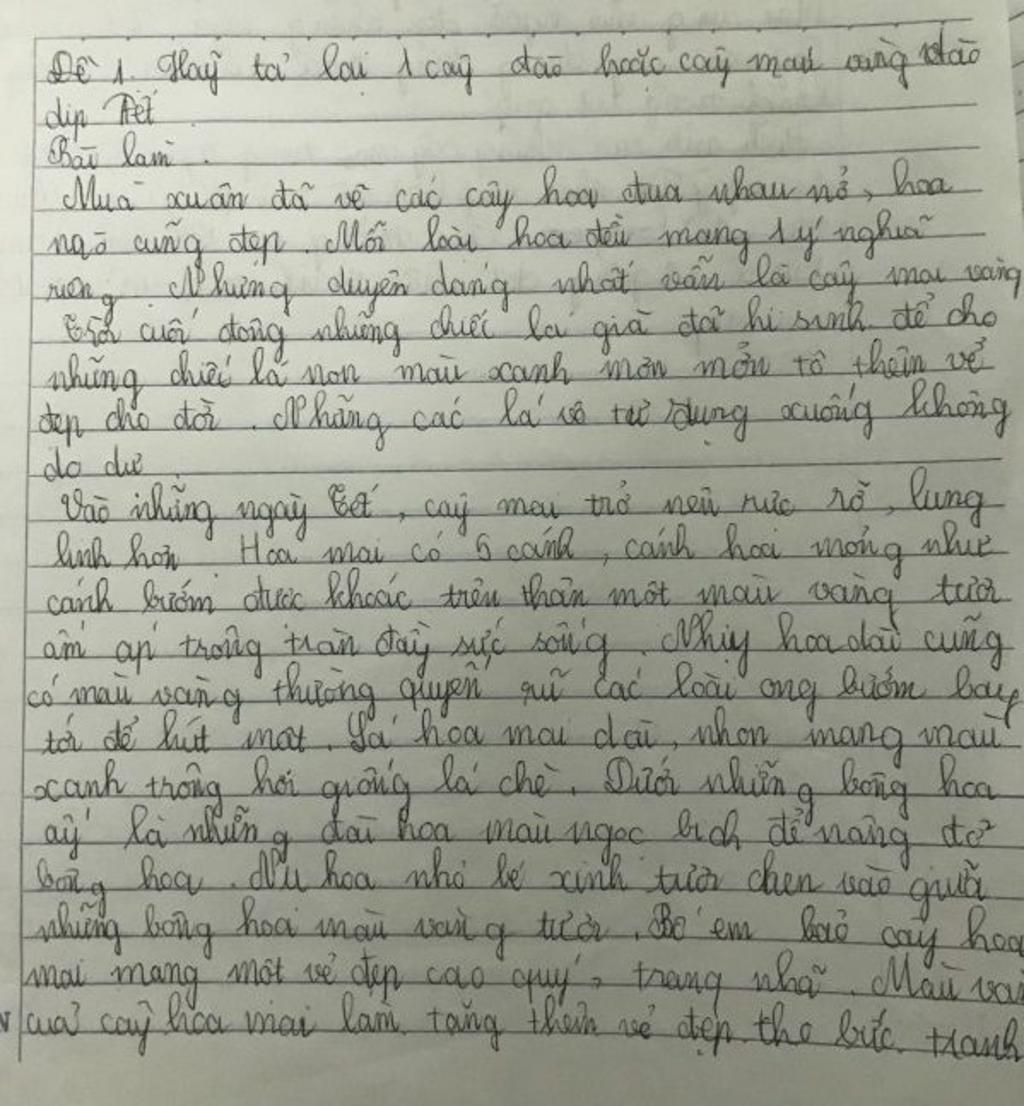 Đề 1. Hãy tả lại 1 cây đào hoặc cây mai vàng vào
dịp Tết
Bài làm.
Mùa xuân đã về các cây hoa đua nhau nở, hoa
nào cũng đẹp. Mỗi loài hoa đều mang 1 ý nghĩa
riêng. Nhưng duyên dáng nhất vẫn là cây mai vàng
Trời cuối đông những chiếc lá già đã hi sinh để cho
những chiếc lá non màu xanh mơn mởn tô thêm vẻ
đẹp cho đời. Nhằng các lá vô tư rụng xuống không
do dự
Vào những ngày Tết, cây mai trở nên rực rỡ, lung
linh hơn Hoa mai có 5 cánh, cánh hoa mỏng như
cánh bướm được khoác trên thân một màu vàng tươi
ấm áp trông tràn đầy sức sống. Nhụy hoa dài cũng
có màu vàng thường quyến rũ các loài ong bướm bay
tới để hút mật. Lá hoa mai dài, nhọn mang màu
xanh trông hơi giống lá chè. Dưới những bông hoa
ấy là những đài hoa màu ngọc bích để nâng đỡ
bông hoa. Nụ hoa nhỏ bé xinh tươi chen vào giữa
những bông hoa màu vàng tươi. Bố em bảo cây hoa
mai mang một vẻ đẹp cao quý, trang nhã. Màu
của cây hoa mai làm tăng thêm vẻ đẹp cho bức tranh